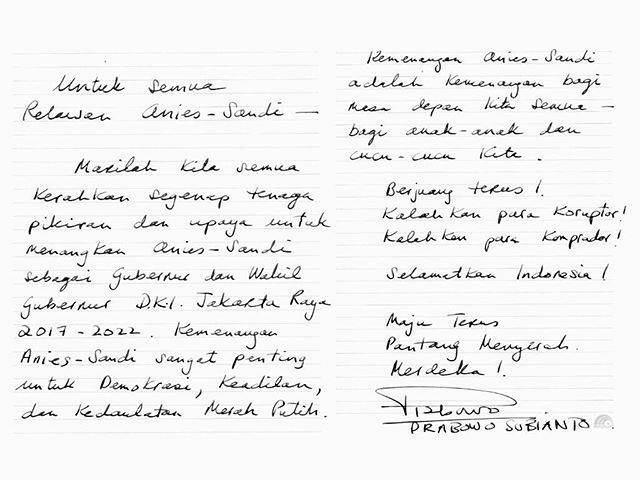 Untuk semua
Relawan Anies-Sandi —
Marilah kita semua
kerahkan segenap tenaga
pikiran dan upaya untuk
menangkan Anies-Sandi
sebagai Gubernur dan Wakil
Gubernur D.K.I. Jakarta Raya
2017-2022. Kemenangan
Anies-Sandi sangat penting
untuk Demokrasi, Keadilan,
dan Kedaulatan Merah Putih.
Kemenangan Anies-Sandi
adalah kemenangan bagi
masa depan kita semua —
bagi anak-anak dan
cucu-cucu kita.
Berjuang terus!
Kalahkan para koruptor!
Kalahkan para komprador!
Selamatkan Indonesia!
Maju Terus
Pantang Menyerah.
Merdeka!
Prabowo
PRABOWO SUBIANTO